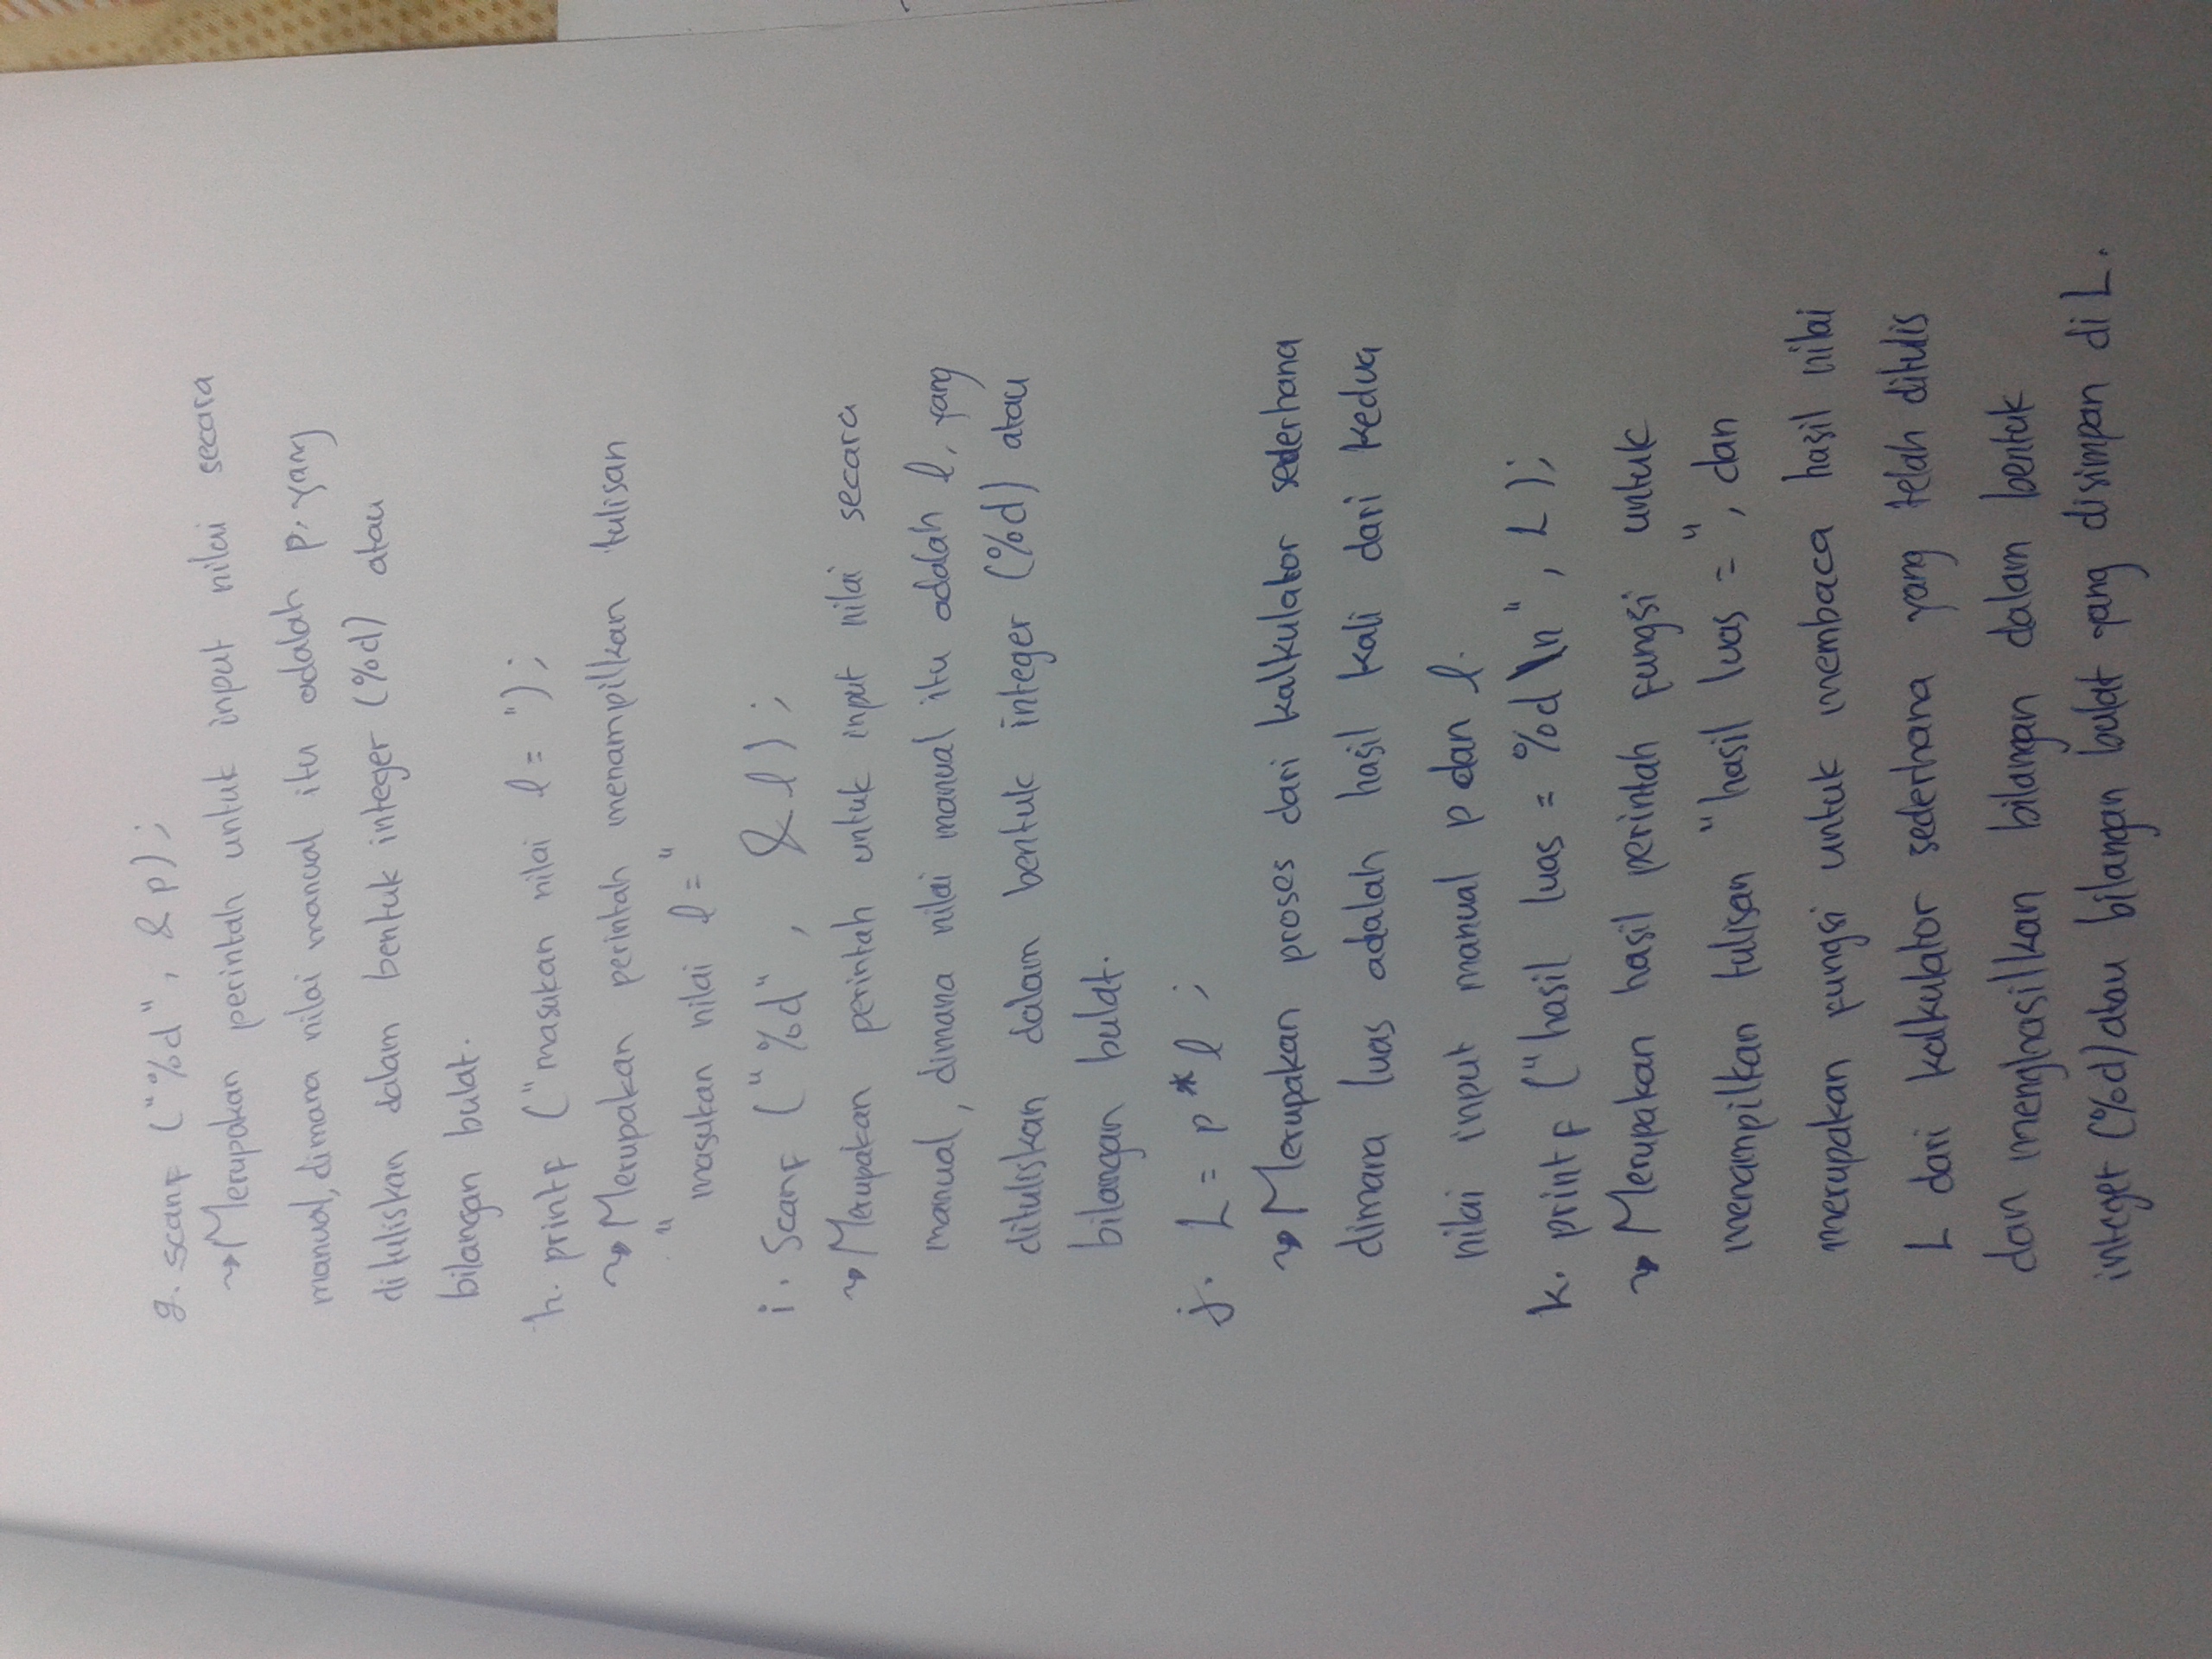 g. scanf ("%d", &p);
→ Merupakan perintah untuk input nilai secara
manual, dimana nilai manual itu adalah p, yang
dituliskan dalam bentuk integer (%d) atau
bilangan bulat.
h. printf ("masukan nilai l = ");
→ Merupakan perintah menampilkan tulisan
"masukan nilai l = "
i. Scanf ("%d", &l);
→ Merupakan perintah untuk input nilai secara
manual, dimana nilai manual itu adalah l, yang
dituliskan dalam bentuk integer (%d) atau
bilangan bulat.
j. L = p * l ;
→ Merupakan proses dari kalkulator sederhana
dimana luas adalah hasil kali dari kedua
nilai input manual p dan l.
k. printf ("hasil luas = %d \n", L);
→ Merupakan hasil perintah fungsi untuk
menampilkan tulisan "hasil luas = ", dan
merupakan fungsi untuk membaca hasil nilai
L dari kalkulator sederhana yang telah ditulis
dan menghasilkan bilangan dalam bentuk
integer (%d) atau bilangan bulat yang disimpan di L.